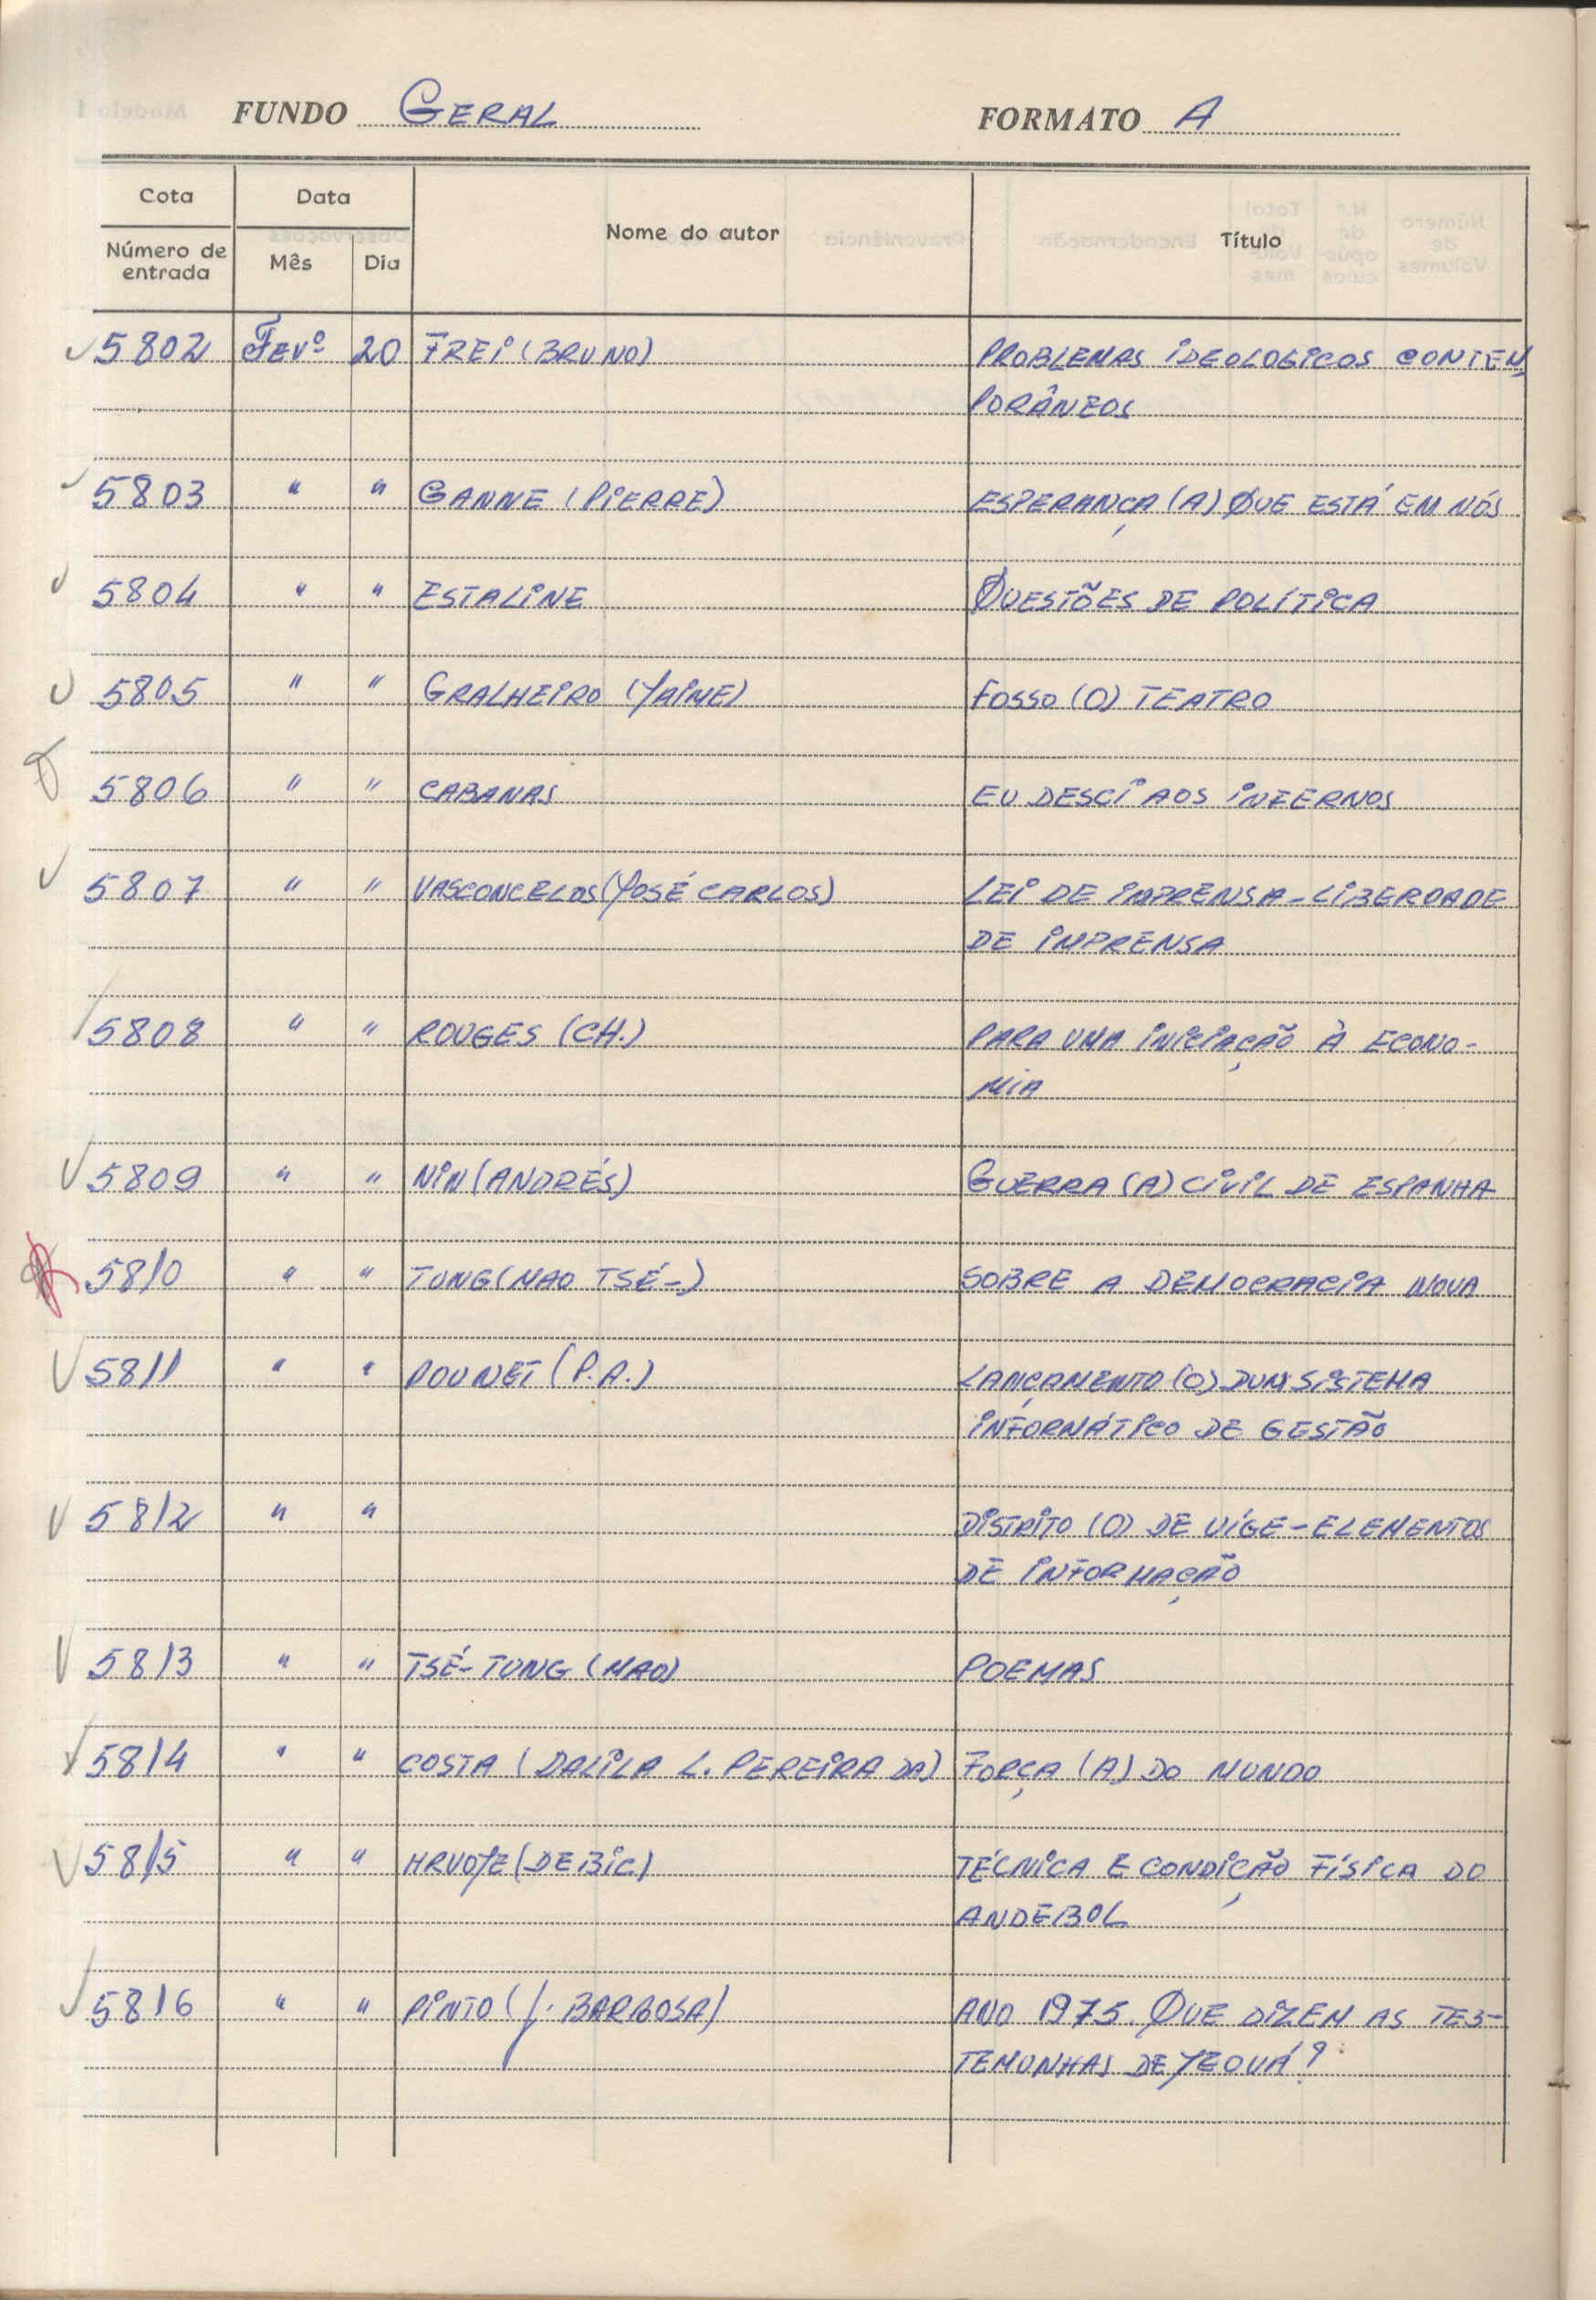 FUNDO GERAL FORMATO A
Cota Data Nome do autor Título
Número de entrada Mês Dia
5802 Fevº 20 FREI (BRUNO) PROBLEMAS IDEOLOGICOS CONTEM
PORÂNEOS
5803 " " GANNE (PIERRE) ESPERANÇA (A) QUE ESTÁ EM NÓS
5804 " " ESTALINE QUESTÕES DE POLÍTICA
5805 " " GRALHEIRO (JAIME) FOSSO (O) TEATRO
5806 " " CABANAS EU DESCI AOS INFERNOS
5807 " " VASCONCELOS (JOSÉ CARLOS) LEI DE IMPRENSA - LIBERDADE
DE IMPRENSA
5808 " " ROUGES (CH.) PARA UMA INICIAÇÃO À ECONO-
MIA
5809 " " NIN (ANDRÉS) GUERRA (A) CIVIL DE ESPANHA
5810 " " TUNG (MAO TSÉ-) SOBRE A DEMOCRACIA NOVA
5811 " " POUNET (P.A.) LANÇAMENTO (O) DUM SISTEMA
INFORMÁTICO DE GESTÃO
5812 " " DISTRITO (O) DE UÍGE - ELEMENTOS
DE INFORMAÇÃO
5813 " " TSÉ-TUNG (MAO) POEMAS
5814 " " COSTA (DALILA L. PEREIRA DA) FORÇA (A) DO MUNDO
5815 " " HRVOJE (DEBIC) TÉCNICA E CONDIÇÃO FÍSICA DO
ANDEBOL
5816 " " PINTO (J. BARBOSA) ANO 1975. QUE DIZEM AS TES-
TEMUNHAS DE JEOVÁ?